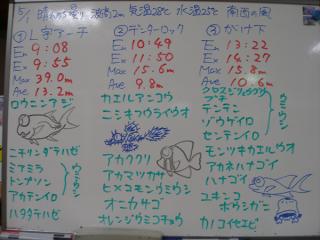 5/1 晴れのち曇り 波高2m 気温28℃ 水温25℃ 南西の風
①L字アーチ
En 9:08
Ex 9:55
Max 39.0m
Ave 13.2m
ロウニンアジ
ニチリンダテハゼ
ミアミラ
トンプソン
アカテンイロ
ウミウシ
ハタタテハゼ
②テンターロック
En 10:49
Ex 11:50
Max 15.8m
Ave 9.8m
カエルアンコウ
ニシキフウライウオ
アカククリ
アカマツカサ
ヒメコモンウミウシ
オニカサゴ
オレンジウミコチョウ
③かけ下
En 13:22
Ex 14:27
Max 15.6m
Ave 10.6m
テンテン
ゾウゲイロ
センテンイロ
ウミウシ
モンツキカエルウオ
アカネハナゴイ
ハナゴイ
ユキンコ
ボウシガニ
カノコイセエビ